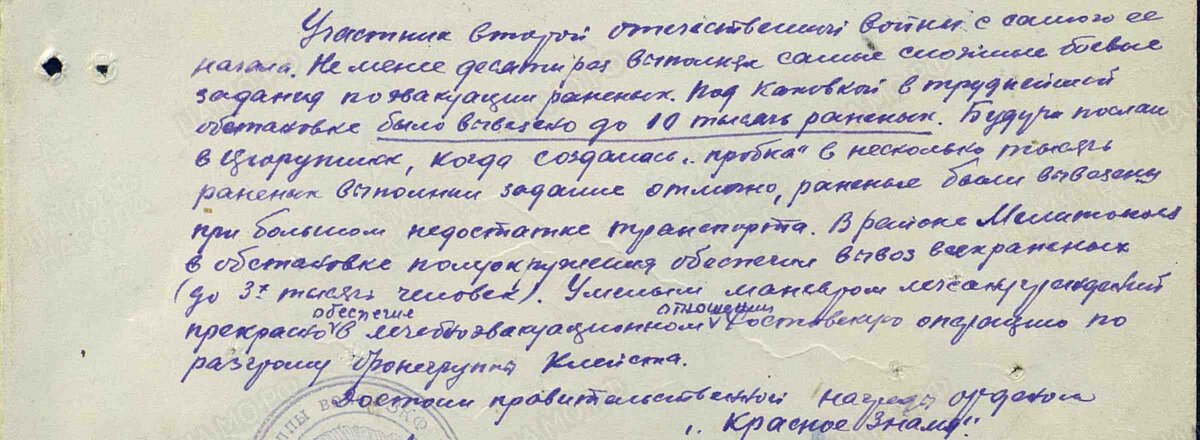 Участник второй отечественной войны с самого ее
начала. Не менее десяти раз выполнял самые сложные боевые
задания по эвакуации раненых. Под Каховкой в труднейшей
обстановке было вывезено до 10 тысяч раненых. Будучи послан
в Цюрупинск, когда создалась „пробка" в несколько тысяч
раненых выполнил задание отлично, раненые были вывезены
при большом недостатке транспорта. В районе Мелитополя
в обстановке полуокружения обеспечил вывоз всех раненых
(до 3х тысяч человек). Умелым маневром лечсанучреждений
обеспечил отношении
прекрасно в лечебноэвакуационном Ростовскую операцию по
разгрому бронегруппы Клейста.
Достоин правительственной награды орденом
„Красное Знамя".